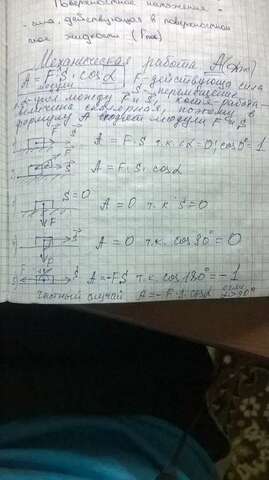 Поверхностное натяжение -
- сила, действующая в поверхностном
слое жидкости (Fпов)
Механическая работа A(Дж)
A = F·S·cosα F - действующая сила
модули S - перемещение
α - угол между F и S, работа -
величина скалярная, поэтому в
формулу A входят модули F и S
1) F S A = F·S т.к. α = 0; cos0° = 1
2) F S A = F·S·cosα
3) S=0 F A = 0 т.к. S=0
4) S F A = 0 т.к. cos 90° = 0
5) F S A = -FS т.к. cos 180° = -1
частный случай A = -F·S·cosα если α>90°